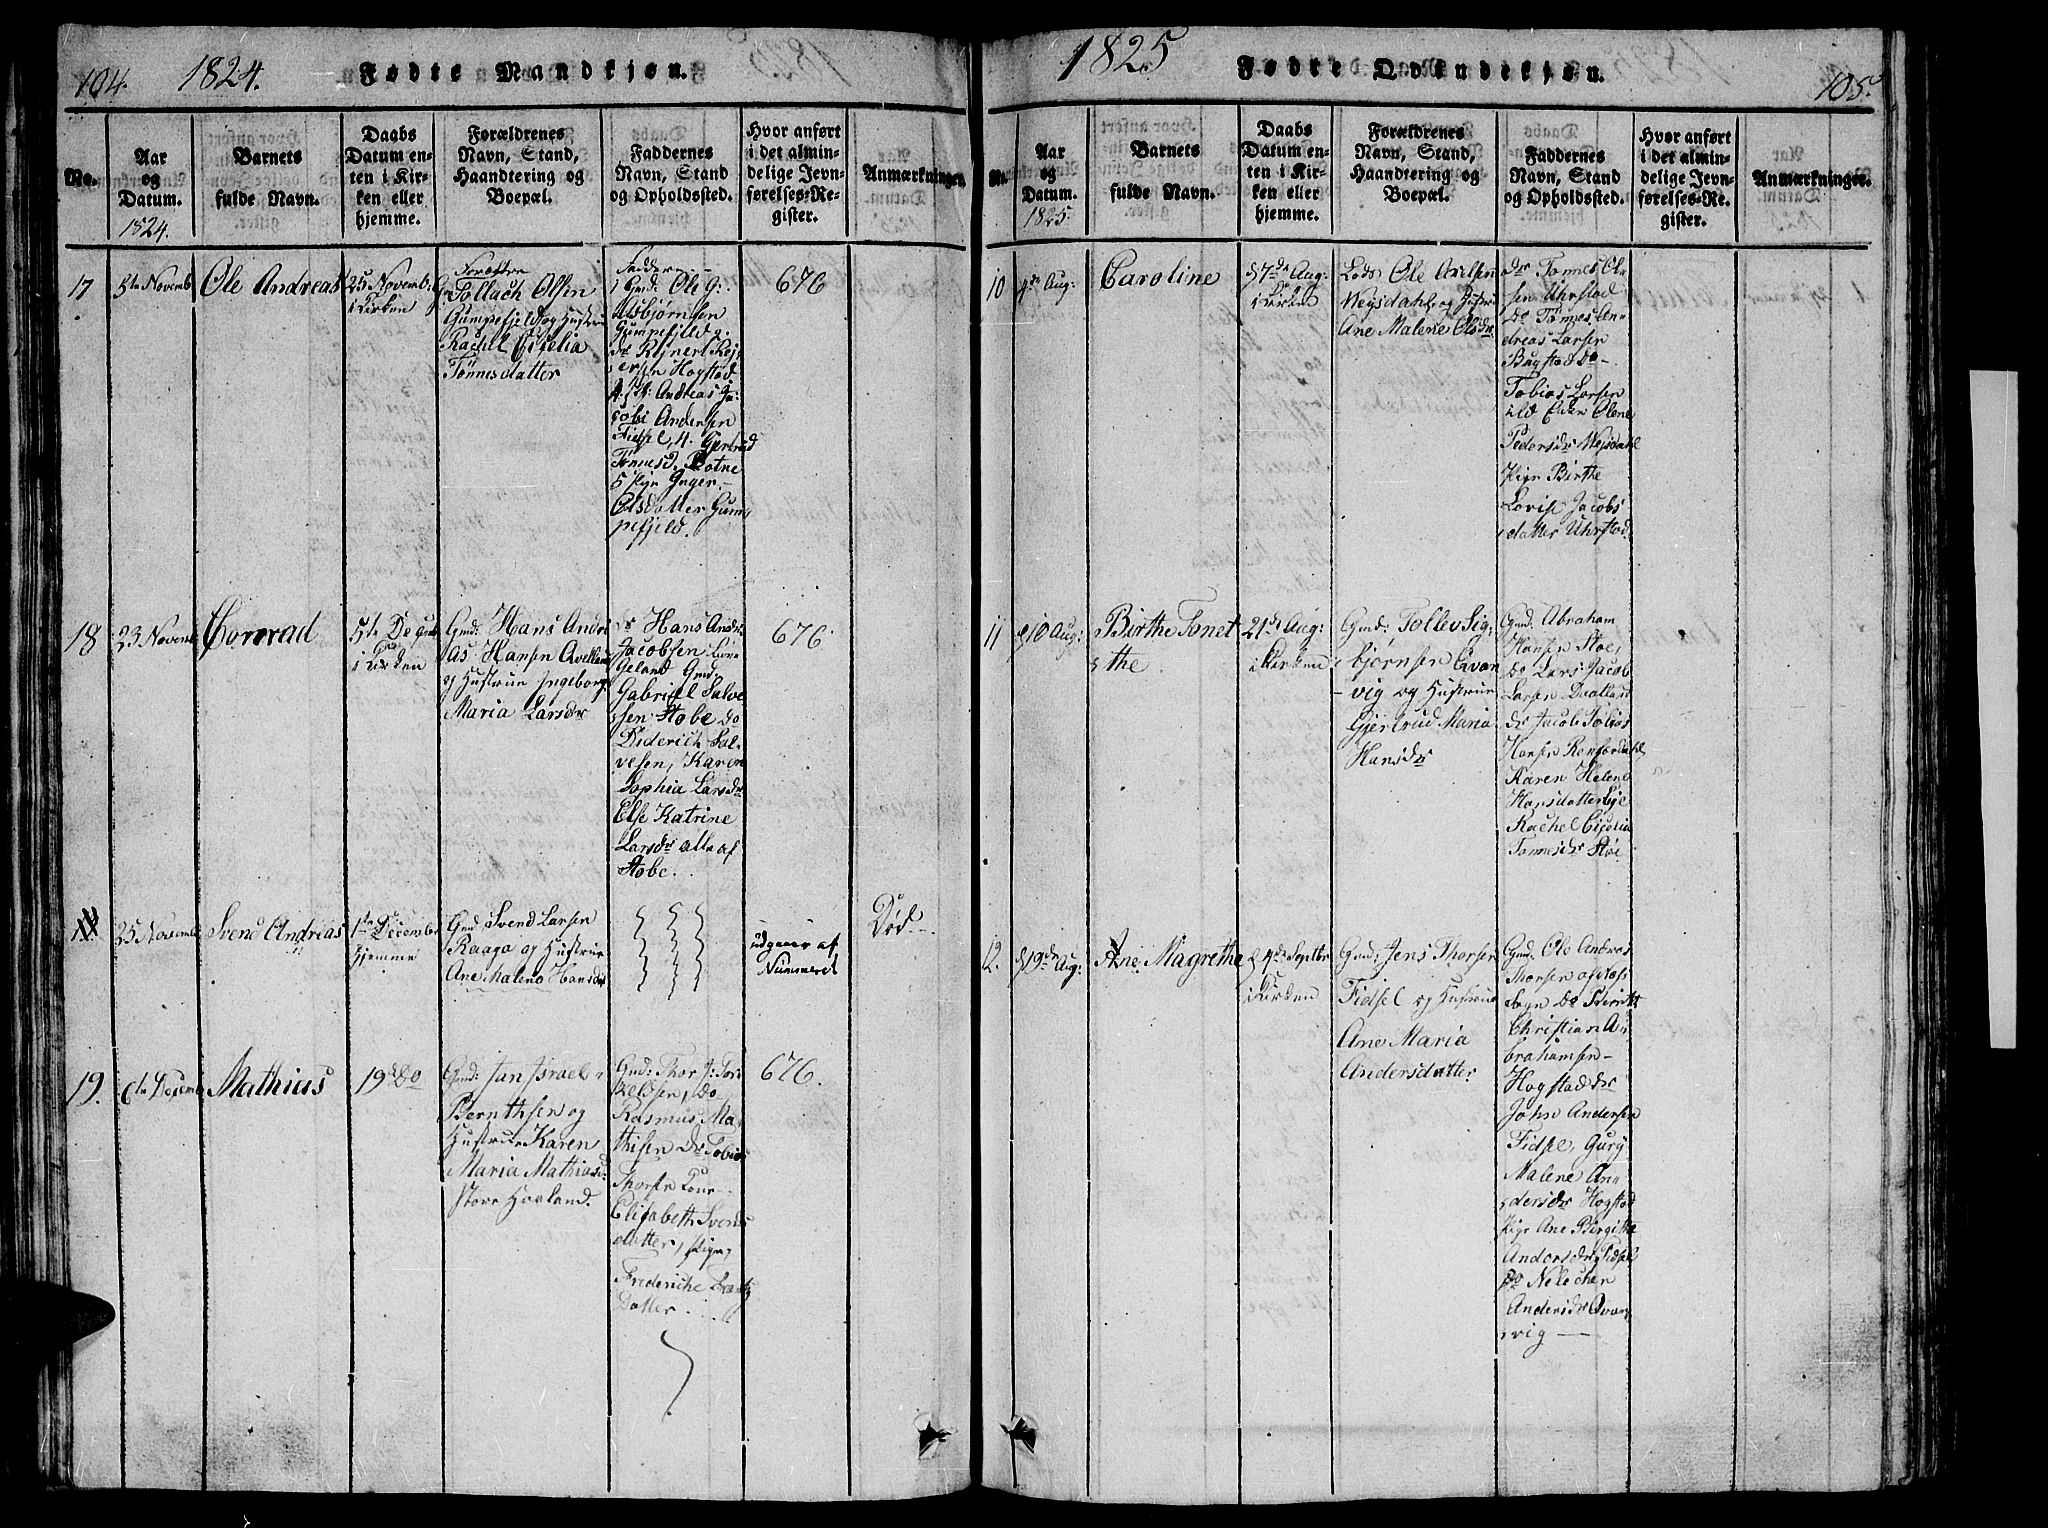 104. 1824. Fødte Mandkjøn.
No.
Aar
og
Datum.
1824.
Barnets
fulde Navn.
Daabs
Datum en-
ten i Kir-
ken eller
hjemme.
Forældrenes
Navn, Stand,
Haandtering og
Boepæl.
Faddernes
Navn, Stand
og Opholdssted.
Hvor anført
i det almin-
delige Jevn-
førelses-Re-
gister.
Anmærkninger.
17
5te Novemb
Ole Andreas
25 Novemb:
i Kirken
Forældre
Tollach Olsen
Gumpefjeld og Hustrue
Rachel Cicelia
Tønnesdatter
Faddere
1 Gmd: Ole G:
Asbjørnsen
Gumpefjeld 2.
do Rejnert Rej,
ersen Hogstad
Andreas Ja:
cobs Andersen
Fidsel, 4. Gjertrud
Tønnesd. Botne
5 Pige Inger
Olsdatter Gum,
pefjeld.
676
18
23 Novemb
Conrad
5te Decemb
i Kirken
Gmd: Hans Andre
as Hansen Avelland
og Hustrue Ingeborg
Maria Larsdr
Hans Andr.
Jacobsen
Geland Gmd.
Gabriel Salve
sen Stobe do
Diderich Sal-
vesen, Karen
Sophia Larsdr
Else Katrine
Larsdr alle af
Stobe.
676
25 Novemb
Svend Andreas
1ste December
hjemme
Gmd Svend Larsen
Raaga og Hustrue
Ane Malene Hansdr
udgaaer af
Nummeret
Død
19.
6te Decemb
Mathius
19de do
Gmd: Jan Israel
Bernthsen og
Hustrue Karen
Maria Mathiasd
Store Haaland.
Gmd: Thor J: Tor
kelsen, do
Rasmus Ma-
thisen dr Tobias
Thorsen Kone
Elisabeth Svends
datter, Pige,
Frederiche
Datter
676.
1825 Fødte Qvindekjøn. 105.
No.
Aar
og
Datum.
1825.
Barnets
fulde Navn.
Daabs
Datum en-
ten i Kir-
ken eller
hjemme.
Forældrenes
Navn, Stand,
Haandtering og
Boepæl.
Faddernes
Navn, Stand
og Opholdssted.
Hvor anført
i det almin-
delige Jevn-
førelses-Re-
gister.
Anmærkninger.
10
4de Aug:
Caroline
d 7de Aug:
i Kirken
Lods Ole Axelsen
Weysdahl og Hustrue
Ane Malene Olsdr
dr Tønnes Ol
sen Uhrstad
do Tønnes An
dreas Larsen
Bugstad do
Tobias Larsen
Olene
Pedersdr Weysdahl
Pige Birthe
Lovise Jacobs
datter Uhrstad.
11
d 10 Aug:
Birthe Tonet
the
21de Aug:
i Kirken
Gmd: Tollev Sig:
bjørnsen Qvan
vig og Hustrue
Gjertrud Maria
Hansdr
Gmd: Abraham
Hansen Stoe,
do Lars Jacob
Larsen Duatland
dr Jacob Tobias
Hansen Renfordahl
Karen Helene
Hansdatter Lye
Rachel Cicelia
Tønnesdr Stoe
12.
d 19de Aug:
Ane Magrethe
d 4de Septbr
i Kirken
Gmd: Jens Thorsen
Fidsel og Hustrue
Ane Maria
Andersdatter
Gmd: Ole Andras
Thorsen af
do Berntt
Christian A:
brahamsen
Hogstad dr
John Andersen
Fidsel, Gury
Malene An:
dersdr Hogstad
Pige Ane Bergithe
Andersdr Fidsel
do Nelechen
Andersdr Qvan
vig